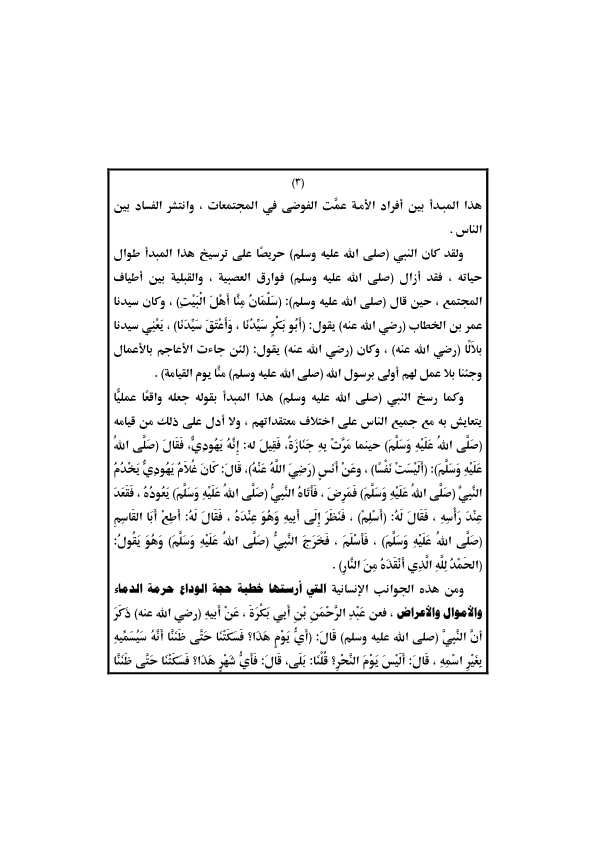 (٣)
هذا المبدأ بين أفراد الأمة عمَّت الفوضى في المجتمعات ، وانتشر الفساد بين
الناس .
ولقد كان النبي (صلى الله عليه وسلم) حريصًا على ترسيخ هذا المبدأ طوال
حياته ، فقد أزال (صلى الله عليه وسلم) فوارق العصبية ، والقبلية بين أطياف
المجتمع ، حين قال (صلى الله عليه وسلم): (سَلْمَانُ مِنَّا أَهْلَ الْبَيْتِ) ، وكان سيدنا
عمر بن الخطاب (رضي الله عنه) يقول: (أَبُو بَكْرٍ سَيِّدُنَا ، وَأَعْتَقَ سَيِّدَنَا) ، يَعْنِي سيدنا
بلَالًا (رضي الله عنه) ، وكان (رضي الله عنه) يقول: (لئن جاءت الأعاجم بالأعمال
وجئنا بلا عمل لهم أولى برسول الله (صلى الله عليه وسلم) منَّا يوم القيامة) .
وكما رسخ النبي (صلى الله عليه وسلم) هذا المبدأ بقوله جعله واقعًا عمليًّا
يتعايش به مع جميع الناس على اختلاف معتقداتهم ، ولا أدل على ذلك من قيامه
(صَلَّى اللهُ عَلَيْهِ وَسَلَّمَ) حينما مَرَّتْ بِهِ جَنَازَةٌ، فَقِيلَ له: إِنَّهُ يَهُودِيٌّ، فَقَالَ (صَلَّى اللهُ
عَلَيْهِ وَسَلَّمَ): (أَلَيْسَتْ نَفْسًا) ، وعَنْ أَنَسٍ (رَضِيَ اللَّهُ عَنْهُ)، قَالَ: كَانَ غُلاَمٌ يَهُودِيٌّ يَخْدُمُ
النَّبِيَّ (صَلَّى اللهُ عَلَيْهِ وَسَلَّمَ) فَمَرِضَ ، فَأَتَاهُ النَّبِيُّ (صَلَّى اللهُ عَلَيْهِ وَسَلَّمَ) يَعُودُهُ ، فَقَعَدَ
عِنْدَ رَأْسِهِ ، فَقَالَ لَهُ: (أَسْلِمْ) ، فَنَظَرَ إِلَى أَبِيهِ وَهُوَ عِنْدَهُ ، فَقَالَ لَهُ: أَطِعْ أَبَا القَاسِمِ
(صَلَّى اللهُ عَلَيْهِ وَسَلَّمَ) ، فَأَسْلَمَ ، فَخَرَجَ النَّبِيُّ (صَلَّى اللهُ عَلَيْهِ وَسَلَّمَ) وَهُوَ يَقُولُ:
(الحَمْدُ لِلَّهِ الَّذِي أَنْقَذَهُ مِنَ النَّارِ) .
ومن هذه الجوانب الإنسانية التي أرستها خطبة حجة الوداع حرمة الدماء
والأموال والأعراض ، فعن عَبْدِ الرَّحْمَنِ بْنِ أَبِي بَكْرَةَ ، عَنْ أَبِيهِ (رضي الله عنه) ذَكَرَ
أنَّ النَّبِيَّ (صلى الله عليه وسلم) قَالَ: (أَيُّ يَوْمٍ هَذَا؟ فَسَكَتْنَا حَتَّى ظَنَنَّا أَنَّهُ سَيُسَمِّيهِ
بِغَيْرِ اسْمِهِ ، قَالَ: أَلَيْسَ يَوْمَ النَّحْرِ؟ قُلْنَا: بَلَى، قَالَ: فَأَيُّ شَهْرٍ هَذَا؟ فَسَكَتْنَا حَتَّى ظَنَنَّا